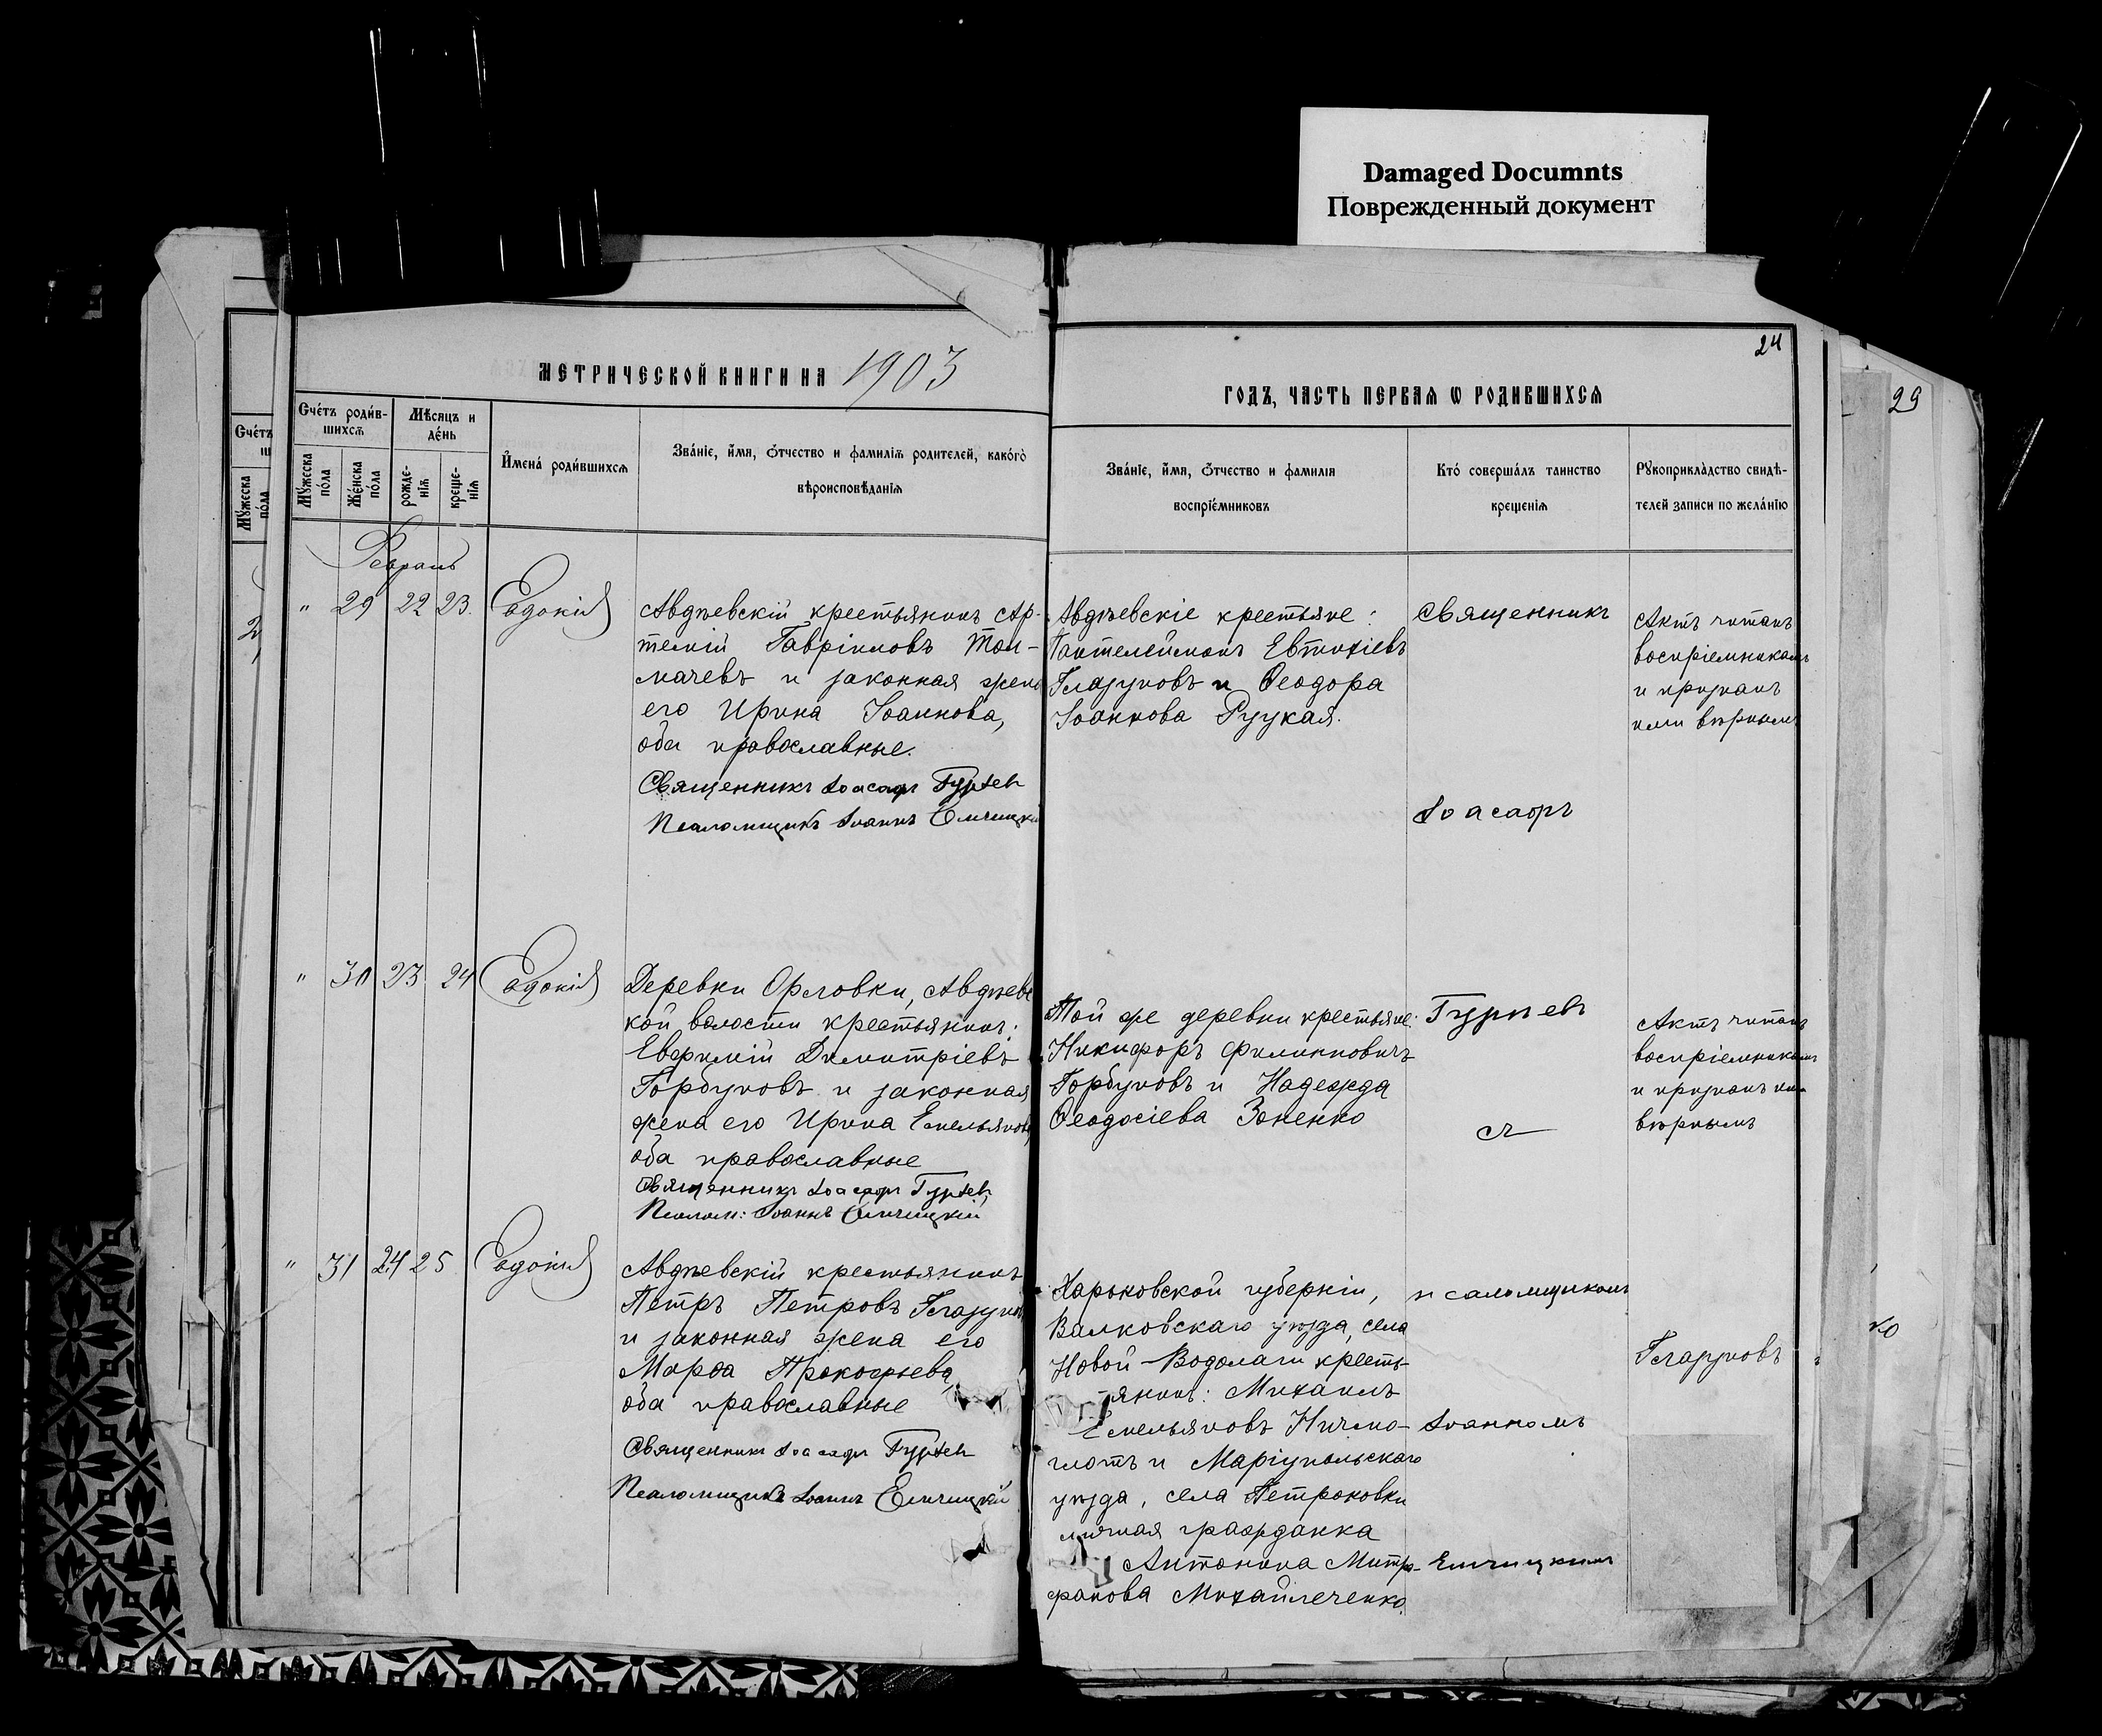 Damaged Documnts
Поврежденный документ
МЕТРИЧЕСКОЙ КНИГИ НА 1903
ГОДЪ, ЧАСТЬ ПЕРВАЯ Ѡ РОДИВШИХСЯ
24
29
Счетъ родив-
шихся
Мѣсяцъ и
день
Имена родившихся
Званіе, имя, отчество и фамилія родителей, какого
вѣроисповѣданія
Мужеска
пола
Женска
пола
рожде-
нія
креще-
нія
Званіе, имя, отчество и фамилія
воспріемниковъ
Кто совершалъ таинство
крещенія
Рукоприкладство свидѣ-
телей записи по желанію
Счетъ
Мужеска
пола
Февраль
" 29 22 23. Евдокія
Авдѣевскій крестьянинъ Ар-
темій Гавріиловъ Тол-
мачевъ и законная жена
его Ирина Іоаннова,
оба православные.
Священникъ Іоасафъ Гурѣевъ
Псаломщикъ Іоаннъ Елчицкій
Авдѣевскіе крестьяне:
Пантелеймонъ Евтихіевъ
Глазуновъ и Ѳеодора
Іоаннова Руцкая.
Священникъ
Іоасафъ
Актъ читанъ
воспріемникамъ
и признанъ
ими вѣрнымъ
" 30 23 24 Евдокія
Деревни Орловки, Авдѣевс
кой волости крестьянинъ:
Евфимій Димитріевъ
Горбуновъ и законная
жена его Ирина Емельянова
оба православные
Священникъ Іоасафъ Гурѣевъ
Псалом: Іоаннъ Елчицкій
Той же деревни крестьяне:
Никифоръ Филипповичъ
Горбуновъ и Надежда
Ѳеодосіева Зоненко
Гурѣевъ
съ
Актъ читанъ
воспріемникамъ
и признанъ ими
вѣрнымъ
" 31 24 25 Евдокія
Авдѣевскій крестьянинъ
Петръ Петровъ Глазуновъ
и законная жена его
Марѳа Прокофьева,
оба православные
Священникъ Іоасафъ Гурѣевъ
Псаломщикъ Іоаннъ Елчицкій
Харьковской губерніи,
Валковскаго уѣзда, села
Новой-Водолаги кресть-
янинъ: Михаилъ
Емельяновъ Ничмо-
глотъ и Маріупольскаго
уѣзда, села Петроковки
личная гражданка
Антонина Митро-
фанова Михайлеченко.
псаломщикомъ
Іоанномъ
Елчицкимъ
Глазуновъ